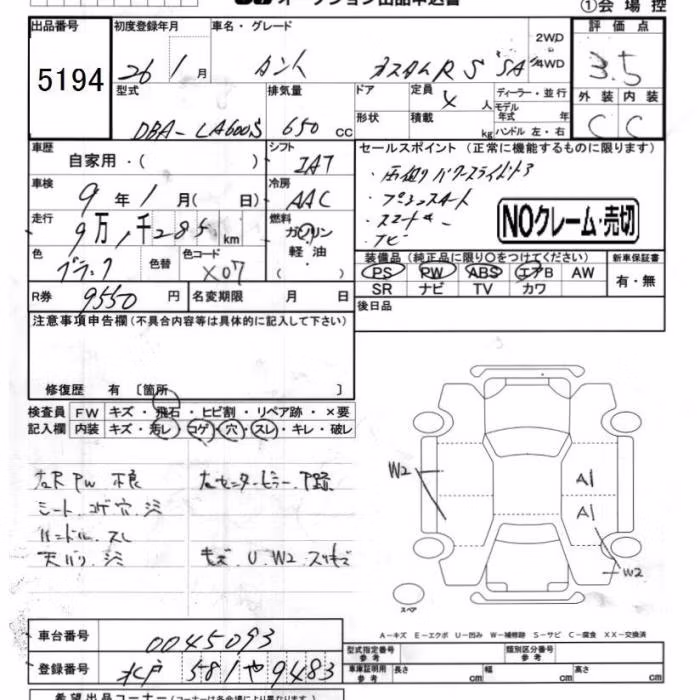 オークション出品申込書
①会場控
出品番号 初度登録年月 車名・グレード 2WD 4WD 評価点
5194 26 / 1 月 タント カスタムRS SA 3.5
型式 排気量 ドア 定員 4 人 ディーラー・並行 外装 内装
モデル年式 年
DBA-LA600S 650 CC 形状 積載 kg ハンドル 左・右 C C
車歴 自家用・( ) シフト IAT セールスポイント(正常に機能するものに限ります)
車検 9 年 1 月( 日) 冷房 AAC ・両側パワースライドドア
・プッシュスタート
・スマートキー
・ナビ
NOクレーム・売切
走行 9万,千285 km 燃料 ガソリン 軽油 ( )
色 ブラック 色替 色コード X07
装備品(純正品に限り○をつけてください) 新車保証書
PS PW ABS エアB AW 有・無
SR ナビ TV カワ
R券 9550 円 名変期限 月 日 後日品
注意事項申告欄(不具合内容等は具体的に記入して下さい)
修復歴 有 [箇所 ]
検査員 FW キズ・飛石・ヒビ割・リペア跡・×要
記入欄 内装 キズ・汚レ・コゲ・穴・スレ・キレ・破レ
左R PW 不良 左センターピラーP跡
シート コゲ穴 シミ
ハンドル スレ
天バリ シミ キズ U W2 スリキズ
W2
A1
A1
W2
スペア
A-キズ E-エクボ U-凹み W-補修跡 S-サビ C-腐食 XX-交換済
車台番号 0045093
登録番号 水戸 581 や 9483
型式指定番号 参考 類別区分番号 参考
車庫証明用 参考 長さ cm 幅 cm 高さ cm
希望出品コーナー(コーナーは各会場により異なります)